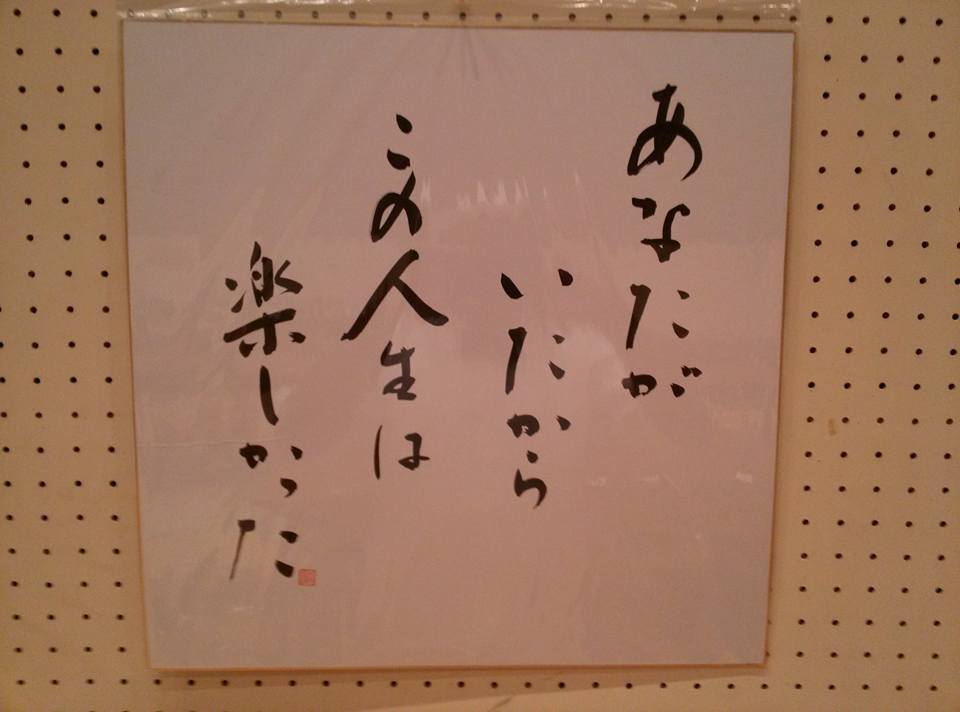 あなたが
いたから
この人生は
楽しかった